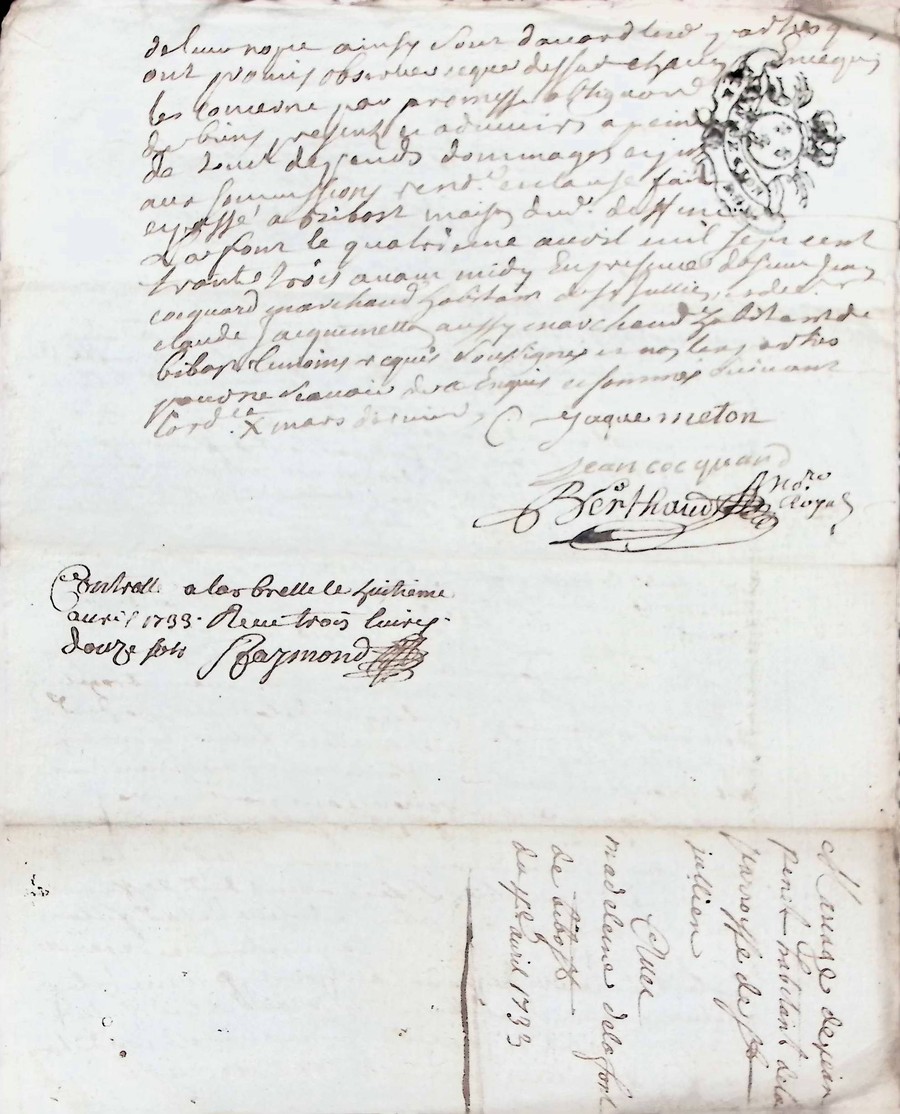 de leur ... ainsy sont d'accord lesd. parties q
ont promis observer ce que dessus chacun en ce qui
les concerne par promesse obligaon
de biens present et advenirs a peine
de tout despends dommages
aux soumissions rend.s et clause fait
et passé a Bibost maison du d.
Laffont le quatrieme avril mil sept cent
trante trois avant midy En presence de sieur Jean
Cocquard marchand habitant de St Jullien et de sr
claude Jacquemetton aussy marchand habitant de
bibost temoins requis soussignes et non les parties
pour ne scavoir de ce Enquis et sommes suivant
lord.ce
X mars dernier C Jaque meton
Jean cocquard
Berthaud No.re Royal
Controllé a Larbrelle le huitieme
avril 1733. Receu trois livres
douze sols Raymond
Mariage de
benoit habitant de la
parroisse de St
jullien
Avec
madeleine delafont
de bibost
du 4e avril 1733